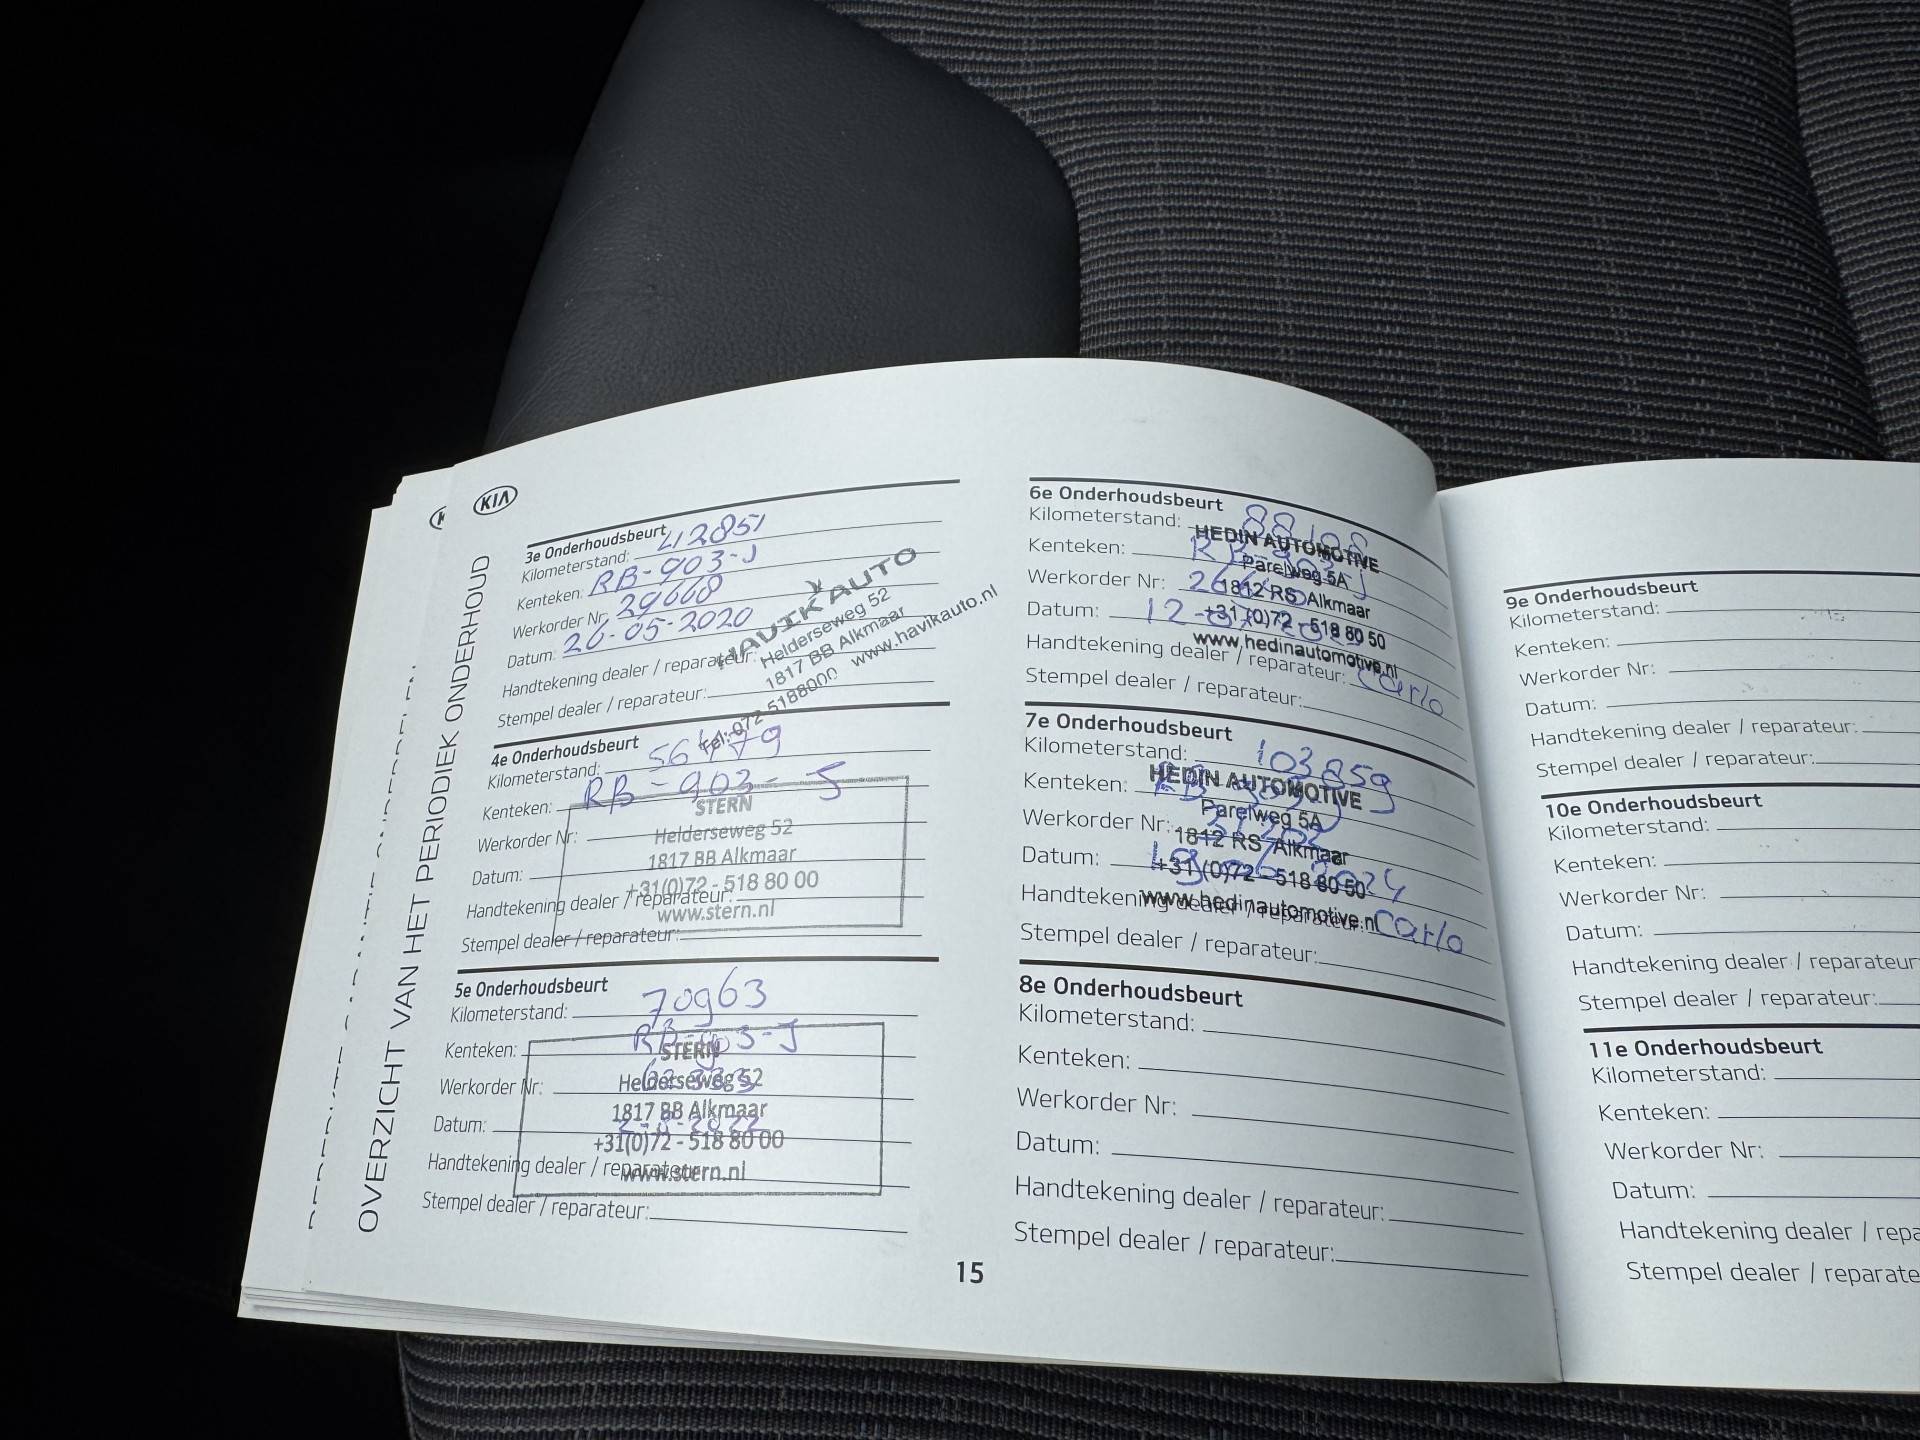 KIA
OVERZICHT VAN HET PERIODIEK ONDERHOUD
3e Onderhoudsbeurt
Kilometerstand: 42851
Kenteken: RB-903-J
Werkorder Nr: 29668
Datum: 26-05-2020
Handtekening dealer / reparateur:
Stempel dealer / reparateur:
HAVIK AUTO
Helderseweg 52
1817 BB Alkmaar
Tel: 072-5188000 www.havikauto.nl
4e Onderhoudsbeurt
Kilometerstand: 56479
Kenteken: RB-903-J
Werkorder Nr:
Datum:
Handtekening dealer / reparateur:
Stempel dealer / reparateur:
STERN
Helderseweg 52
1817 BB Alkmaar
+31(0)72 - 518 80 00
www.stern.nl
5e Onderhoudsbeurt
Kilometerstand: 70963
Kenteken: RB-903-J
Werkorder Nr:
Datum:
Handtekening dealer / reparateur:
Stempel dealer / reparateur:
STERN
Helderseweg 52
1817 BB Alkmaar
+31(0)72 - 518 80 00
www.stern.nl
6e Onderhoudsbeurt
Kilometerstand: 88108
Kenteken: RB-903-J
Werkorder Nr:
Datum:
Handtekening dealer / reparateur: Carlo
Stempel dealer / reparateur:
HEDIN AUTOMOTIVE
Parelweg 5A
1812 RS Alkmaar
+31 (0)72 - 518 80 50
www.hedinautomotive.nl
7e Onderhoudsbeurt
Kilometerstand: 103859
Kenteken:
Werkorder Nr:
Datum: 2024
Handtekening dealer / reparateur: Carlo
Stempel dealer / reparateur:
HEDIN AUTOMOTIVE
Parelweg 5A
1812 RS Alkmaar
+31 (0)72 - 518 80 50
www.hedinautomotive.nl
8e Onderhoudsbeurt
Kilometerstand:
Kenteken:
Werkorder Nr:
Datum:
Handtekening dealer / reparateur:
Stempel dealer / reparateur:
15
9e Onderhoudsbeurt
Kilometerstand:
Kenteken:
Werkorder Nr:
Datum:
Handtekening dealer / reparateur:
Stempel dealer / reparateur:
10e Onderhoudsbeurt
Kilometerstand:
Kenteken:
Werkorder Nr:
Datum:
Handtekening dealer / reparateur
Stempel dealer / reparateur:
11e Onderhoudsbeurt
Kilometerstand:
Kenteken:
Werkorder Nr:
Datum:
Handtekening dealer / repa
Stempel dealer / reparate